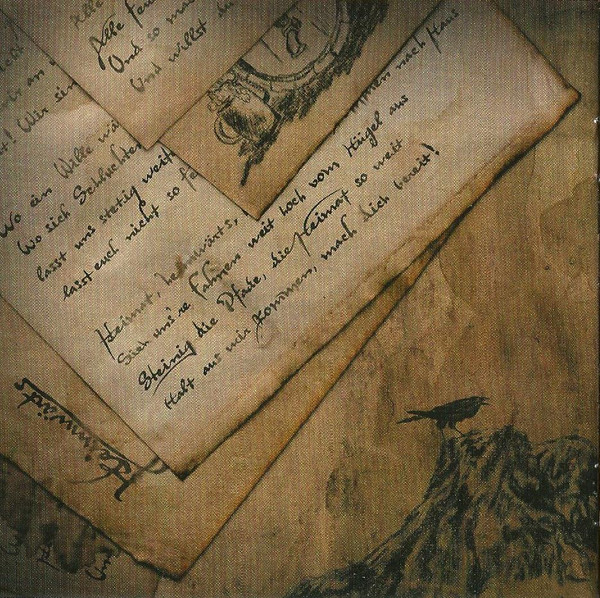 Alle
Alle Feu
Und so ma
Und willst d
wir an
t! Wir sin
Wo ein Wille wä
Wo sich Schluchten
lasst uns stetig weit
lasst euch nicht so fe
mmen nach Haus
Heimat, heimwärts,
Sieh uns're Fahnen weit hoch vom Hügel aus
Steinig die Pfade, die Heimat so weit
Halt aus wir kommen, mach dich bereit!
Heimwärts